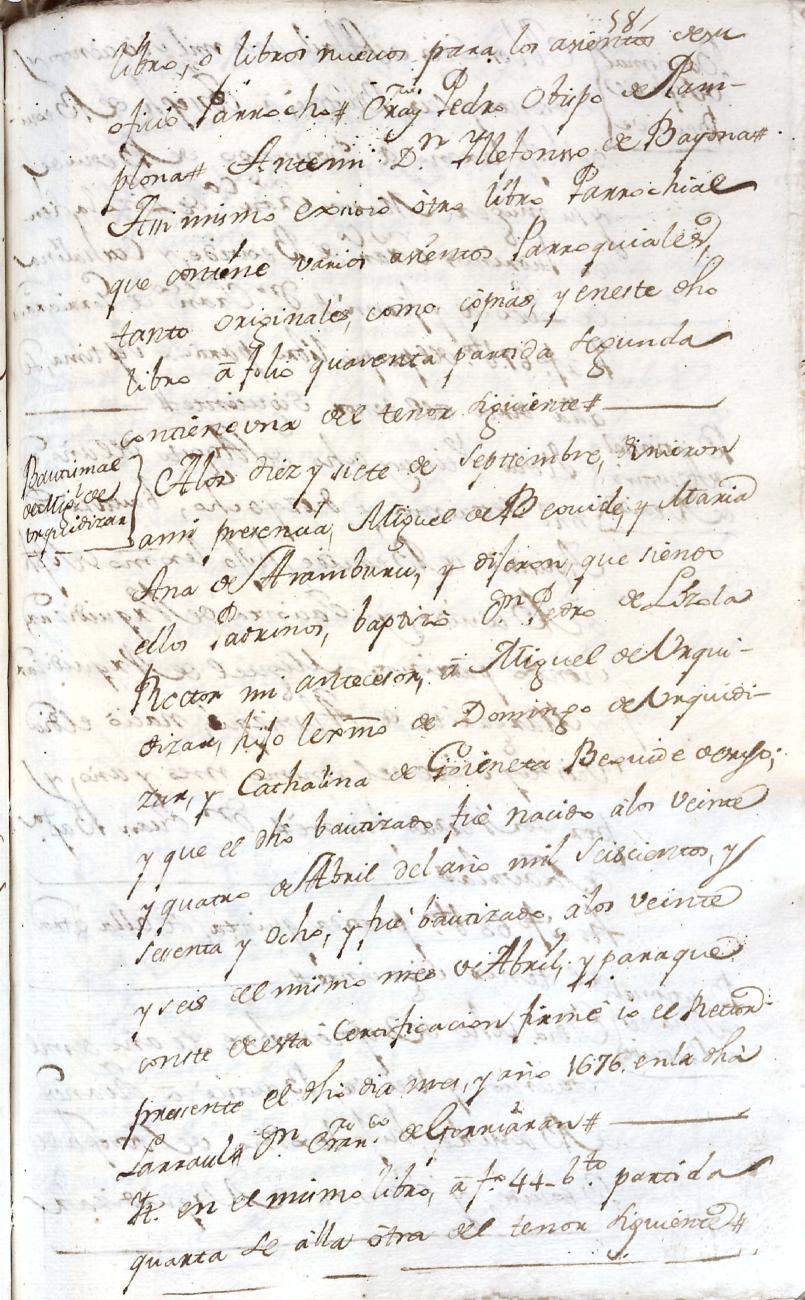 58
libro, o libros nuevos para los asientos de su
oficio Parrocho# Fray Pedro Obispo de Pam-
plona# Antemi Dn Illefonso de Bayona#
Assi mismo exivio òtro libro Parrochial
que contiene varios asientos Parroquiales,
tanto originales, como còpias, y en este dho
libro â folio quarenta partida segunda
contiene una del tenor siguiente#
Bautismal
de Migl de
Urquidizar
A los diez y siete de septiembre, vinieron
ami presencia, Miguel de Beovide, y Maria
Ana de Aramburu, y dijeron, que siendo
ellos Padrinos, baptizò Dn Pedro de
Rector mi antecesor, â Miguel de Urqui-
dizar, hijo lexmo de Domingo de Urquidi-
zar, y Cathalina de Goieneta Beovide
y que el dho bautizado fuè nacido alos veinte
y quatro de Abril del año mil seiscientos, y
sesenta y ocho, y fuè bautizado, alos veinte
y seis del mismo mes de Abril, y paraque
conste de esta Certificacion firmè io el Rector
presente el dho dia mes, y año 1676. en la dha
Larraul# Dn Franco de Gorriàran#
Yt. en el mismo libro, â fo 44-bto partida
quarta se àlla òtra del tenor siguiente#